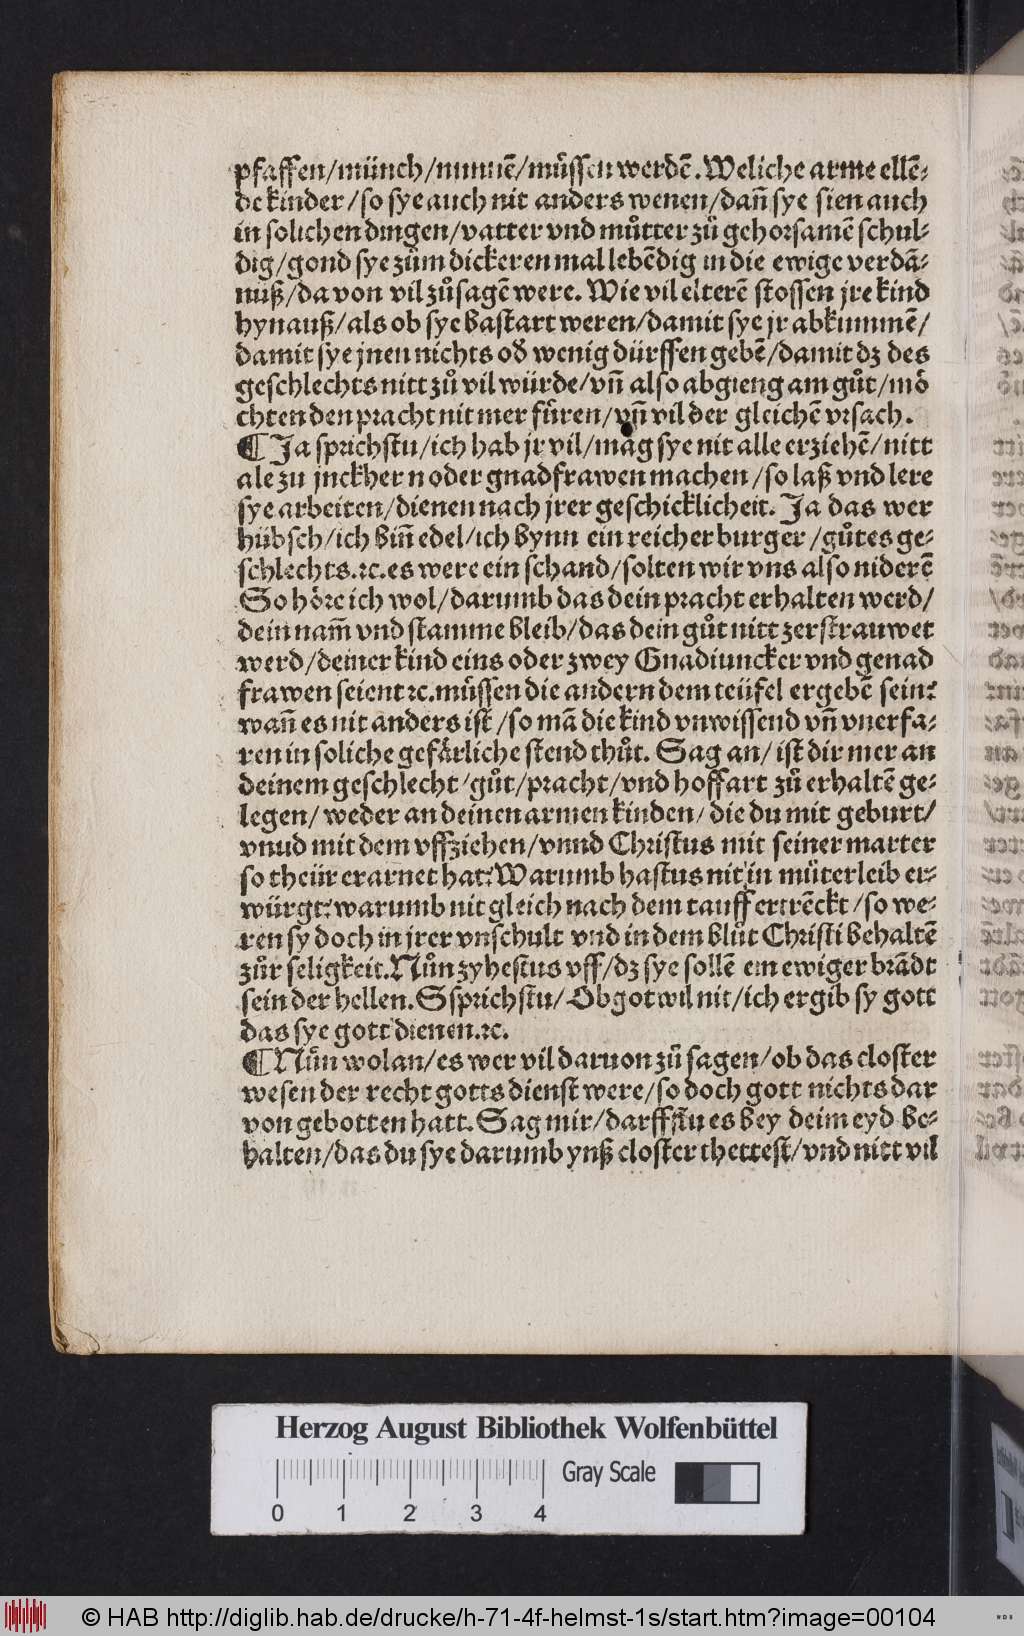 pfaffen/münch/nunnē/müssen werdē. Weliche arme ellē-
de kinder/so sye auch nit anders wenen/dañ sye sien auch
in solichen dingen/vatter vnd můtter zů gehorsamē schul-
dig/gond sye zům dickeren mal lebēdig in die ewige verdā-
nuß/da von vil zůsagē were. Wie vil elterē stossen jre kind
hynauß/als ob sye bastart weren/damit sye jr abkummē/
damit sye jnen nichts od̕ wenig dürffen gebē/damit dz des
geschlechts nitt zů vil würde/vñ also abgieng am gůt/mö
chten den pracht nit mer füren/vñ vil der gleichē vrsach.
¶ Ja sprichstu/ich hab jr vil/mag sye nit alle erziehē/nitt
ale zu jnckhern oder gnadfrawen machen/so laß vnd lere
sye arbeiten/dienen nach jrer geschicklicheit. Ja das wer
hübsch/ich biñ edel/ich bynn ein reicher burger/gůtes ge-
schlechts.ꝛc.es were ein schand/solten wir vns also niderē
So höre ich wol/darumb das dein pracht erhalten werd/
dein nam̄ vnd stamme bleib/das dein gůt nitt zerstrauwet
werd/deiner kind eins oder zwey Gnadiuncker vnd genad
frawen seient ꝛc.müssen die andern dem teüfel ergebē sein?
wañ es nit anders ist/so mā die kind vnwissend vñ vnerfa-
ren in soliche gefärliche stend thůt. Sag an/ist dir mer an
deinem geschlecht/gůt/pracht/vnd hoffart zů erhaltē ge-
legen/weder an deinen armen kinden/die du mit geburt/
vnud mit dem vffziehen/vnnd Christus mit seiner marter
so theür erarnet hat? Warumb hastus nit in müterleib er-
würgt? warumb nit gleich nach dem tauff ertrēckt/so we-
ren sy doch in jrer vnschult vnd in dem blůt Christi behaltē
zůr seligkeit. Nůn zyhestus vff/dz sye sollē ein ewiger brādt
sein der hellen. Ssprichstu/Ob got wil nit/ich ergib sy gott
das sye gott dienen.ꝛc.
¶ Nůn wolan/es wer vil daruon zů sagen/ob das closter
wesen der recht gotts dienst were/so doch gott nichts dar
von gebotten hatt. Sag mir/darffstu es bey deim eyd be-
halten/das du sye darumb ynß closter thettest/vnd nitt vil
Herzog August Bibliothek Wolfenbüttel
Gray Scale
0 1 2 3 4
© HAB http://diglib.hab.de/drucke/h-71-4f-helmst-1s/start.htm?image=00104